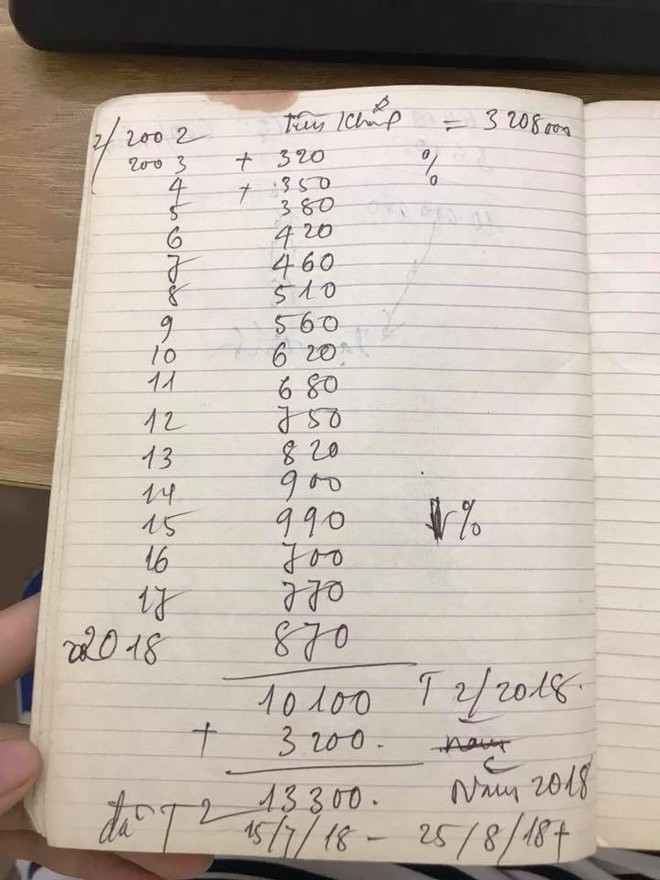 2/2002 Tiền Khấp = 3208000
2003 + 320 %
4 + 350 %
5 380
6 420
7 460
8 510
9 560
10 620
11 680
12 750
13 820
14 900
15 990 %
16 700
17 770
2018 870
10100 T 2/2018.
+ 3200.
13300. Năm 2018
đã T2 15/7/18 - 25/8/18+